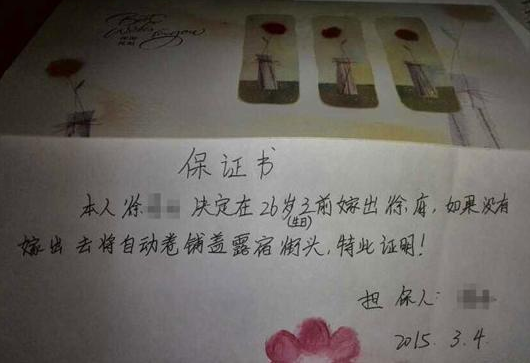 Best
Wishes
保证书
本人徐 决定在26岁之前嫁出徐府,如果没有
(生日)
嫁出去将自动卷铺盖露宿街头,特此证明!
担保人:
2015.3.4